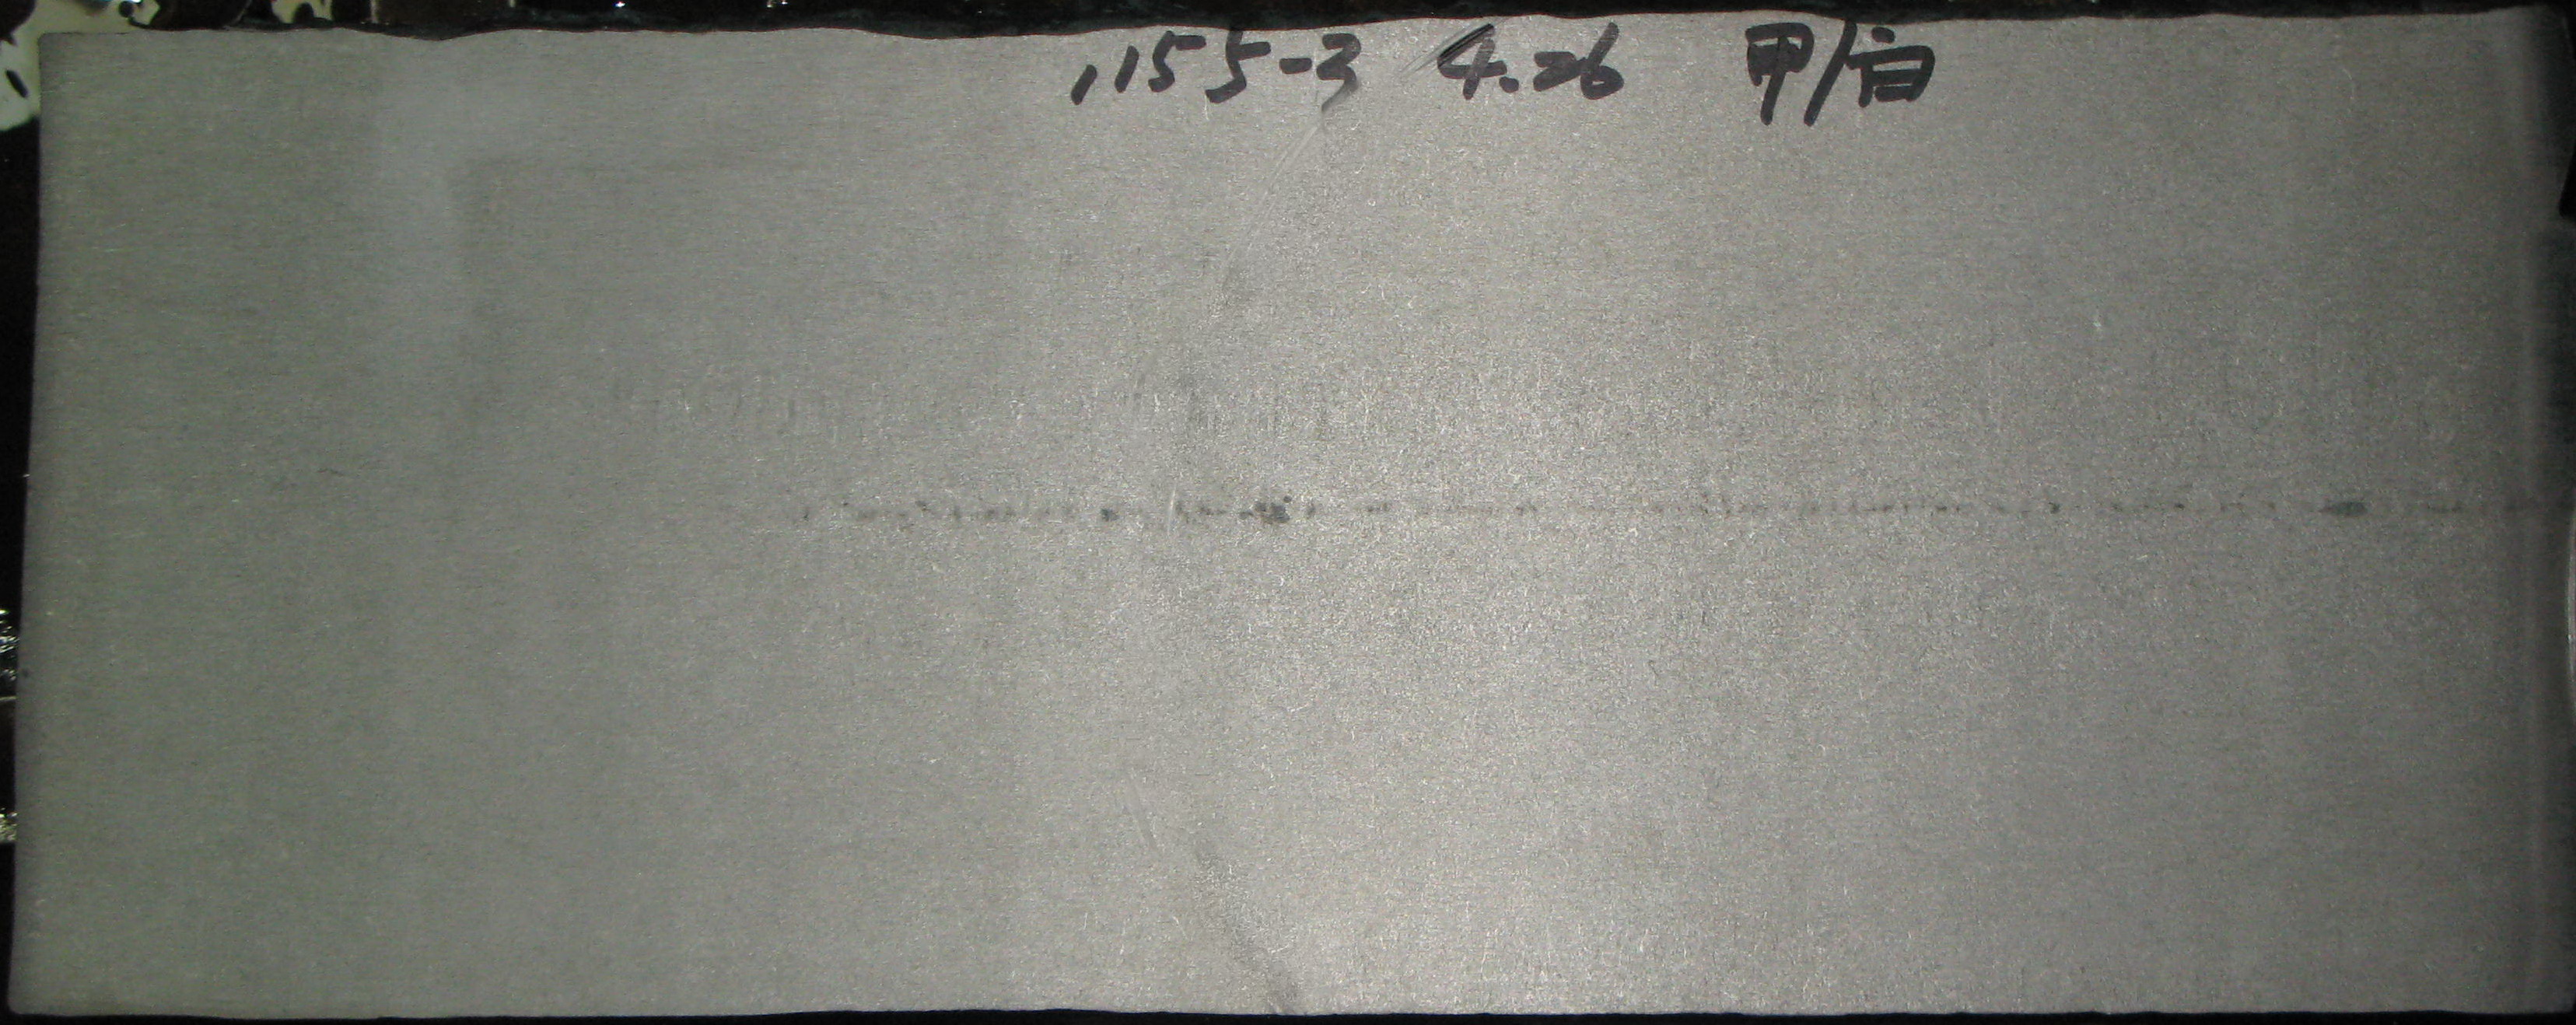 1155-3 4.26 甲/白